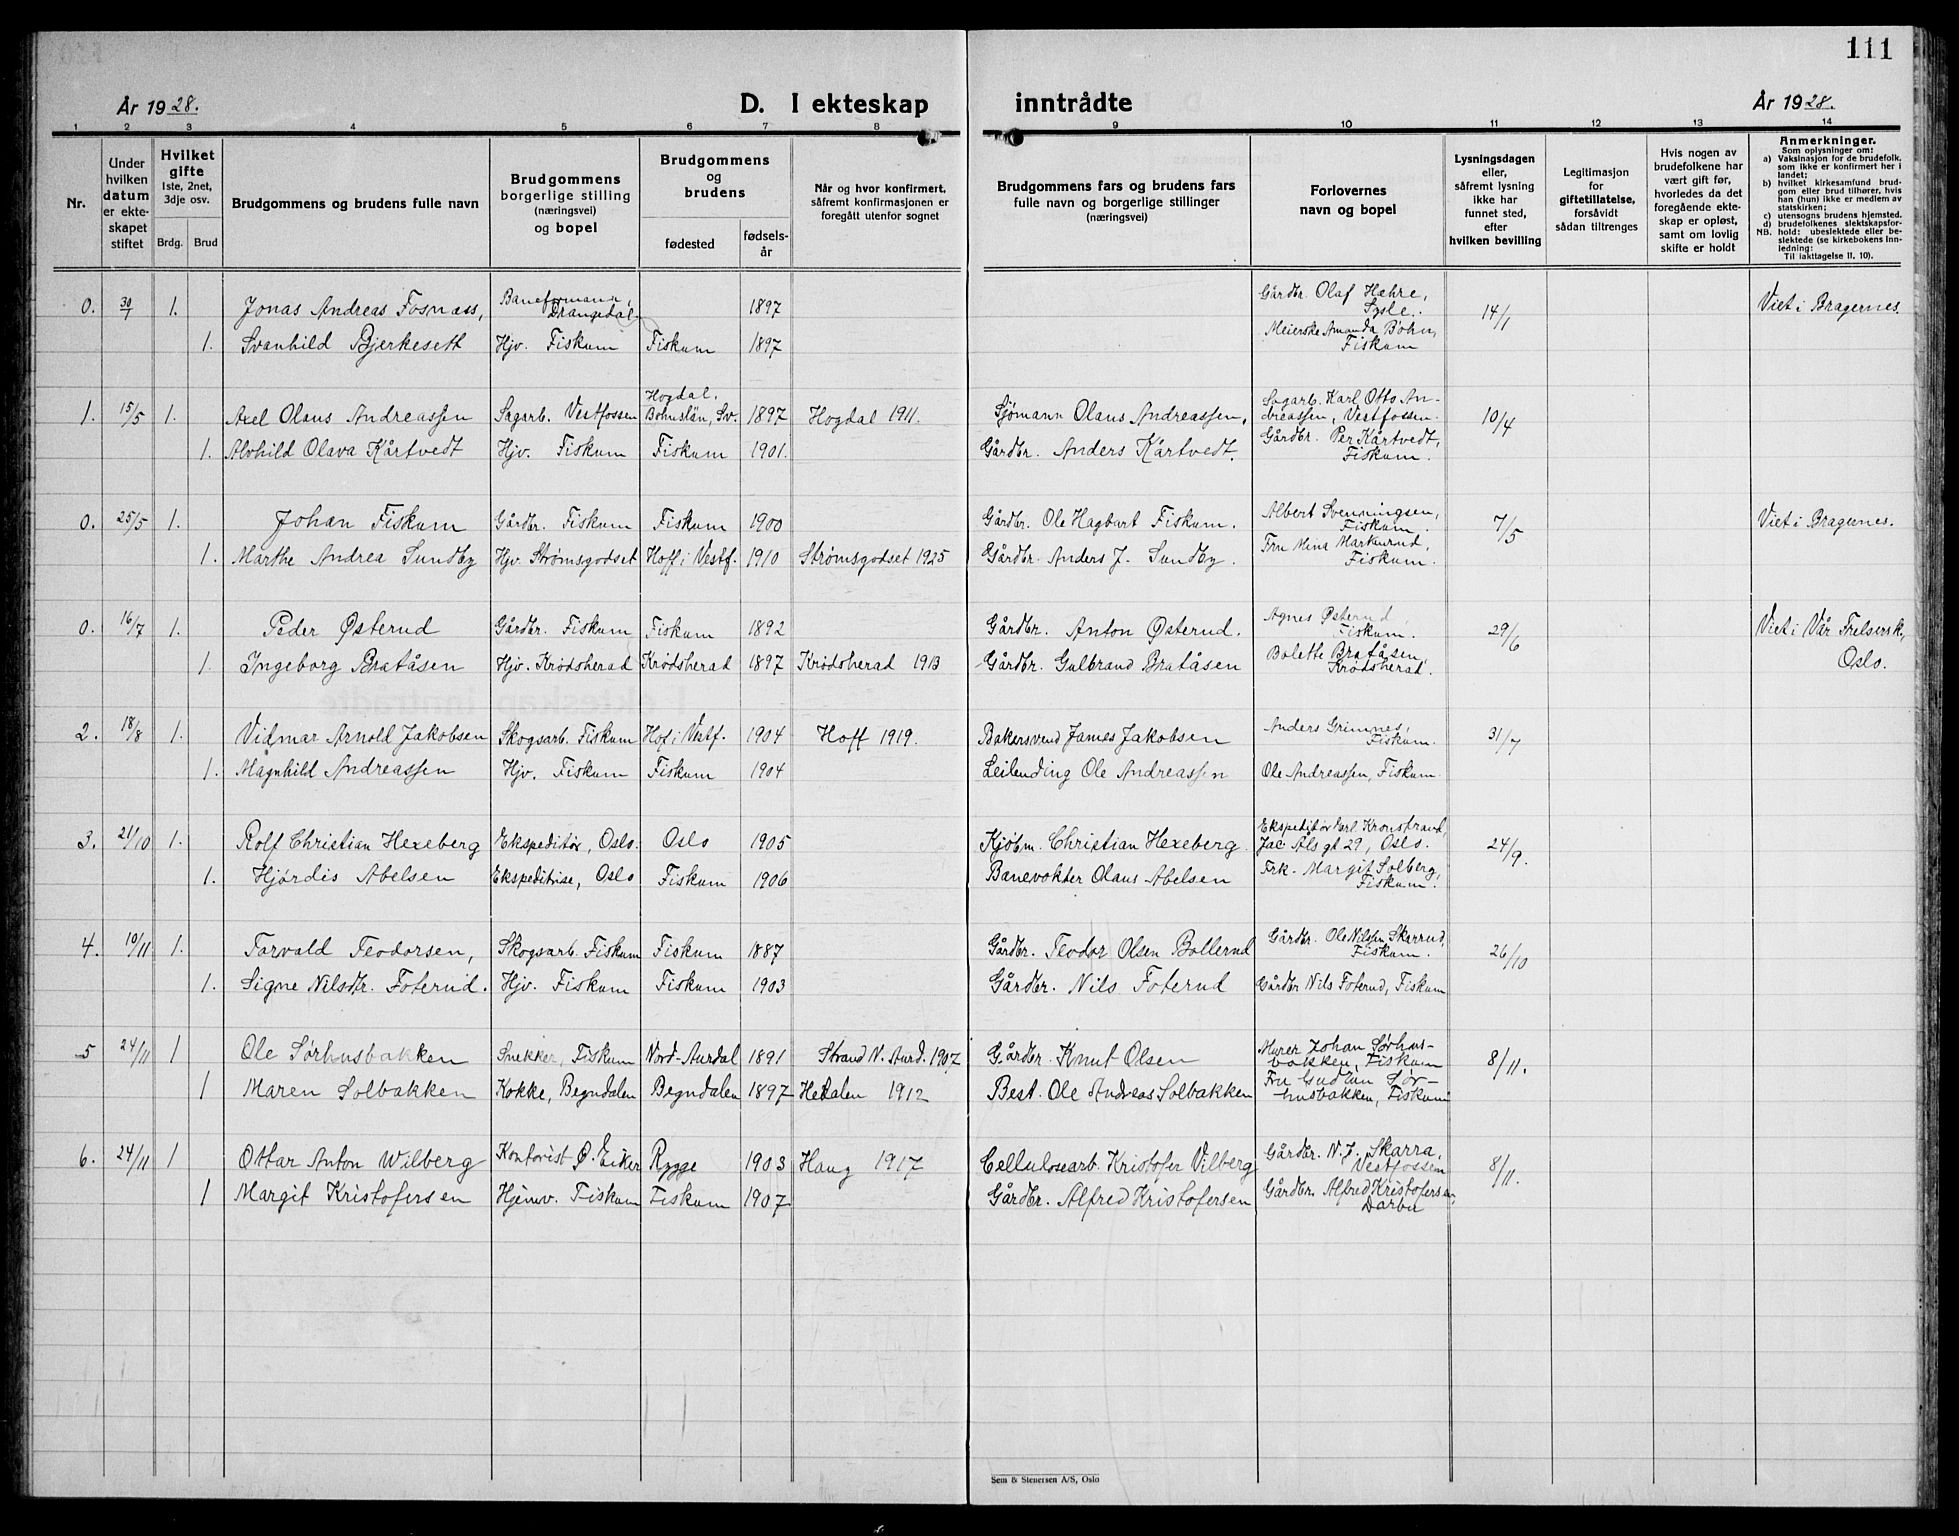 111
År 1928. D. I ekteskap inntrådte År 1928.
1 2 3 4 5 6 7 8 9 10 11 12 13 14
Nr.
Under hvilken datum er ekteskapet stiftet
Hvilket gifte 1ste, 2net, 3dje osv.
Brdg. Brud
Brudgommens og brudens fulle navn
Brudgommens borgerlige stilling (næringsvei) og bopel
Brudgommens og brudens
fødested
fødselsår
Når og hvor konfirmert, såfremt konfirmasjonen er foregått utenfor sognet
Brudgommens fars og brudens fars fulle navn og borgerlige stillinger (næringsvei)
Forlovernes navn og bopel
Lysningsdagen eller, såfremt lysning ikke har funnet sted, efter hvilken bevilling
Legitimasjon for giftetillatelse, forsåvidt sådan tiltrenges
Hvis nogen av brudefolkene har vært gift før, hvorledes da det foregående ekteskap er opløst, samt om lovlig skifte er holdt
Anmerkninger.
Som oplysninger om:
a) Vaksinasjon for de brudefolk, som ikke er konfirmert her i landet;
b) hvilket kirkesamfund brudgom eller brud tilhører, hvis han (hun) ikke er medlem av statskirken;
c) utensogns brudens hjemsted.
d) brudefolkenes slektskapsforhold: ubeslektede eller beslektede (se kirkebokens Innledning:
NB.
Til iakttagelse II. 10).
0. 30/1 1. Jonas Andreas Fosnæss, Baneformann, Drangedal 1897 Gårdbr. Olaf Hæhre, Sysle. 14/1 Viet i Bragernes.
1. Svanhild Bjerkesett Hjv. Fiskum Fiskum 1897 Meierske Amanda Bøhn, Fiskum
1. 15/5 1. Axel Olaus Andreassen Sagarb. Vestfossen Hogdal, Bohuslän, Sv. 1897 Hogdal 1911. Sjømann Olaus Andreassen, Sagarb. Karl Otto Andreassen, Vestfossen. 10/4
1. Alvhild Olava Kårtvedt Hjv. Fiskum Fiskum 1901. Gårdbr. Anders Kårtvedt. Gårdbr. Per Kårtvedt, Fiskum.
0. 25/5 1. Johan Fiskum Gårdbr. Fiskum Fiskum 1900 Gårdbr. Ole Hagbart Fiskum. Albert Svenningsen, Fiskum. 7/5 Viet i Bragernes.
1. Marthe Andrea Sundby Hjv. Strømsgodset Hoff i Vestf. 1910 Strømsgodset 1925 Gårdbr. Anders J. Sundby. Fru Mina Markerud, Fiskum.
0. 16/7 1. Peder Østerud Gårdbr. Fiskum Fiskum 1892 Gårdbr. Anton Østerud. Agnes Østerud, Fiskum. 29/6 Viet i Vår Frelsersk, Oslo.
1. Ingeborg Bratåsen Hjv. Krødsherad Krødsherad 1897 Krødsherad 1913 Gårdbr. Gulbrand Bratåsen Bolette Bratåsen, Krødsherad.
2. 18/8 1. Vidmar Arnold Jakobsen Skogsarb. Fiskum Hof i Vestf. 1904 Hoff 1919. Bakersvend James Jakobsen Anders Grimnes, Fiskum. 31/7
1. Magnhild Andreassen Hjv. Fiskum Fiskum 1904 Leilending Ole Andreassen Ole Andreassen, Fiskum.
3. 21/10 1. Rolf Christian Hexeberg Ekspeditør, Oslo. Oslo 1905 Kjøbm. Christian Hexeberg Ekspeditør Erl. Kronstrand, Jac. Åls gt 29, Oslo. 24/9.
1. Hjørdis Abelsen Ekspeditrise, Oslo Fiskum 1906 Banevokter Olaus Abelsen Frk. Margit Solberg, Fiskum.
4. 10/11 1. Torvald Teodorsen, Skogsarb. Fiskum Fiskum 1887 Gårdbr. Teodor Olsen Bollerud Gårdbr. Ole Nilssen Skarrud, Fiskum. 26/10
1. Signe Nilsdtr. Foterud. Hjv. Fiskum Fiskum 1903 Gårdbr. Nils Foterud Gårdbr Nils Foterud, Fiskum
5 24/11 1 Ole Sørhusbakken Snekker, Fiskum Nord-Aurdal 1891 Strand N. Aurd. 1907 Gårdbr. Knut Olsen Murer Johan Sørhusbakken, Fiskum 8/11.
1 Maren Solbakken Kokke, Begndalen Begndalen 1897 Hedalen 1912 Best. Ole Andreas Solbakken Fru Gudrun Sørhusbakken, Fiskum
6. 24/11 1 Ottar Anton Wilberg Kontorist Ø. Eiker Rygge 1903 Haug 1917 Cellulosearb. Kristofer Vilberg Gårdbr. N. J. Skarra, Vestfossen 8/11.
1 Margit Kristofersen Hjemv. Fiskum Fiskum 1907 Gårdbr. Alfred Kristofersen Gårdbr. Alfred Kristofersen, Darbu
Sem & Stenersen A/S, Oslo